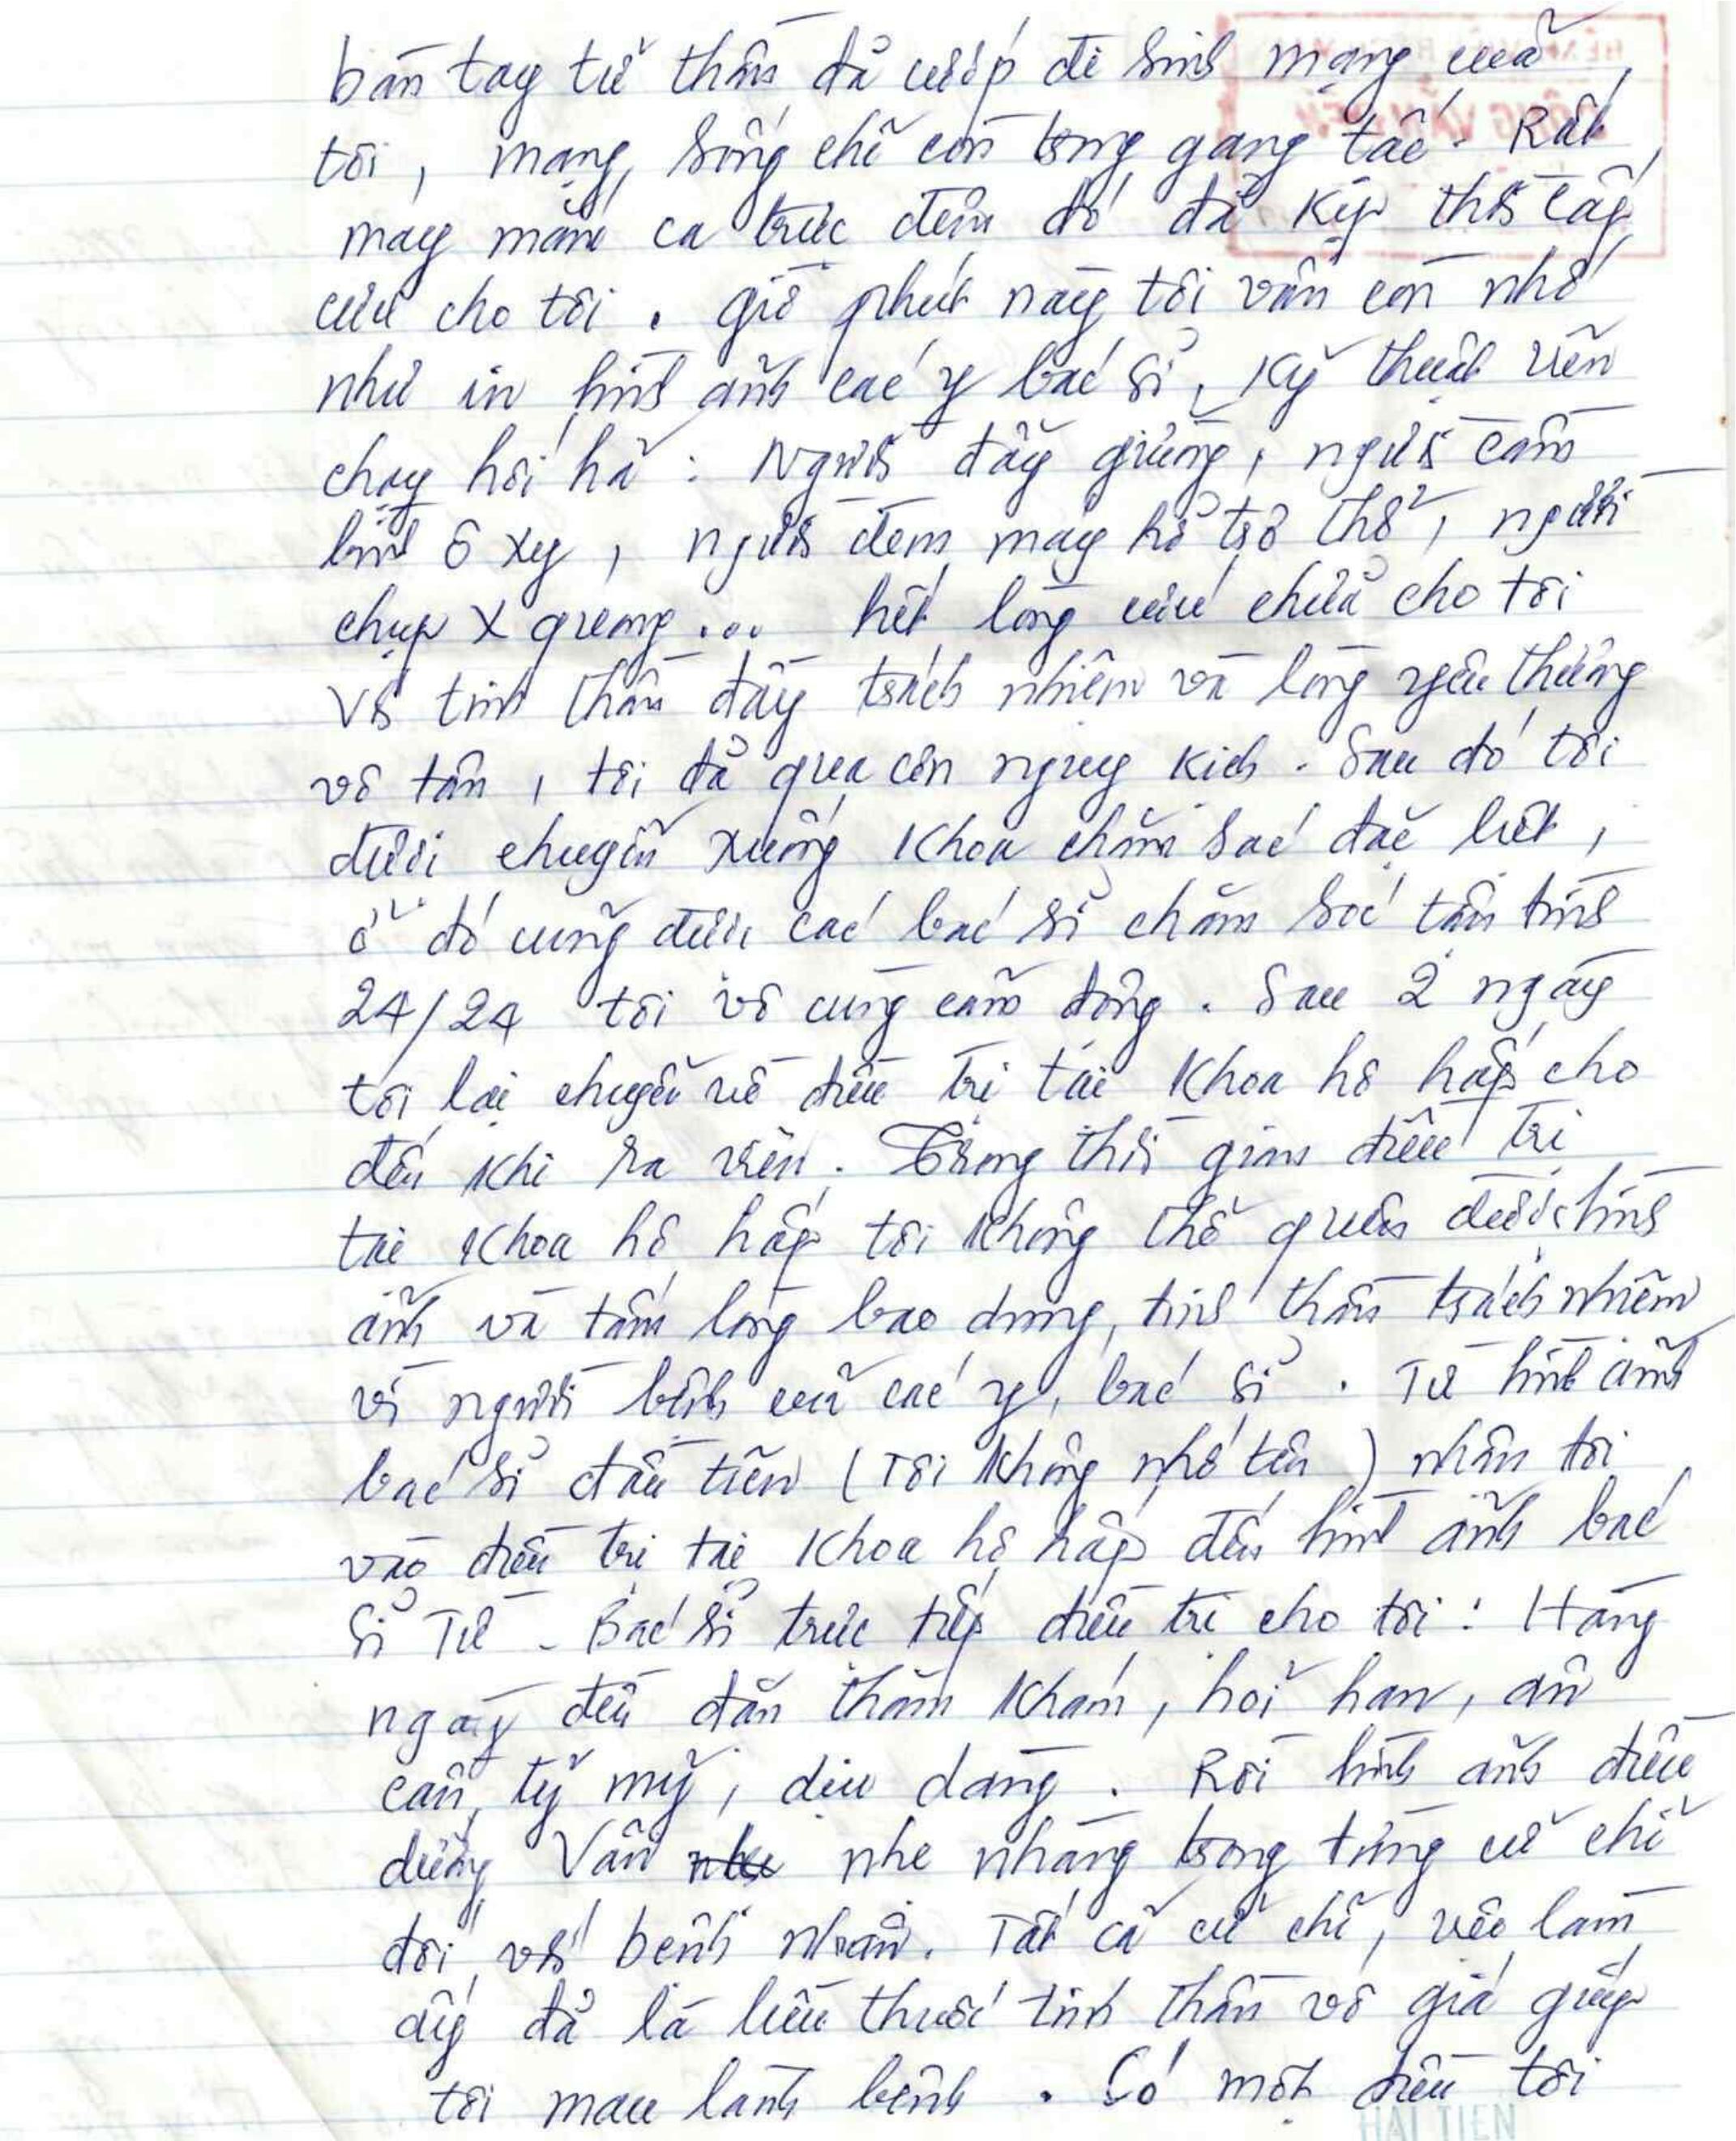 bàn tay tử thần đã cướp đi sinh mạng của
tôi, mạng sống chỉ còn trong gang tấc. Rất
may mắn ca trực đêm đó đã kịp thời cấp
cứu cho tôi. giờ phút này tôi vẫn còn nhớ
như in hình ảnh các y bác sĩ, kỹ thuật viên
chạy hối hả: Người đẩy giường, người cầm
bình ô xy, người đem máy hỗ trợ thở, người
chụp X quang... hết lòng cứu chữa cho tôi
Với tinh thần đầy trách nhiệm và lòng yêu thương
vô tận, tôi đã qua cơn nguy kịch. Sau đó tôi
được chuyển xuống khoa chăm sóc đặc biệt,
ở đó cũng được các bác sĩ chăm sóc tận tình
24/24 tôi vô cùng cảm động. Sau 2 ngày
tôi lại chuyển về điều trị tại khoa hô hấp cho
đến khi ra viện. Trong thời gian điều trị
tại khoa hô hấp tôi không thể quên được hình
ảnh và tấm lòng bao dung, tinh thần trách nhiệm
vì người bệnh của các y, bác sĩ. Từ hình ảnh
bác sĩ đầu tiên (Tôi không nhớ tên) nhận tôi
vào điều trị tại khoa hô hấp đến hình ảnh bác
sĩ Tư - Bác sĩ trực tiếp điều trị cho tôi: Hàng
ngày đều đặn thăm khám, hỏi han, ân
cần, tỷ mỷ, dịu dàng. Rồi hình ảnh điều
dưỡng Vân nhẹ nhàng trong từng cử chỉ
đối với bệnh nhân. Tất cả cử chỉ, việc làm
ấy đã là liều thuốc tinh thần vô giá giúp
tôi mau lành bệnh. Có một điều tôi
HẢI TIẾN